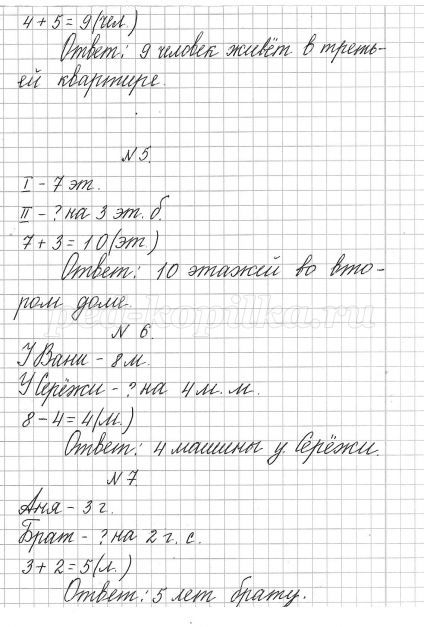 4 + 5 = 9 (чел.)
Ответ: 9 человек живёт в треть-
ей квартире.
N 5.
I - 7 эт.
II - ? на 3 эт. б.
7 + 3 = 10 (эт.)
Ответ: 10 этажей во вто-
ром доме.
ped-kopilka.ru
N 6.
У Вани - 8 м.
У Серёжи - ? на 4 м. м.
8 - 4 = 4 (м.)
Ответ: 4 машины у Серёжи.
N 7
Аня - 3 г.
Брат - ? на 2 г. с.
3 + 2 = 5 (л.)
Ответ: 5 лет брату.